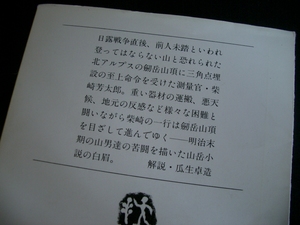 日露戦争直後、前人未踏といわれ
登ってはならない山と恐れられた
北アルプスの劒岳山頂に三角点埋
設の至上命令を受けた測量官・柴
崎芳太郎。重い器材の運搬、悪天
候、地元の反感など様々な困難と
闘いながら柴崎の一行は劒岳山頂
を目ざして進んでゆく──明治末
期の山男達の苦闘を描いた山岳小
説の白眉。　　　解説・瓜生卓造